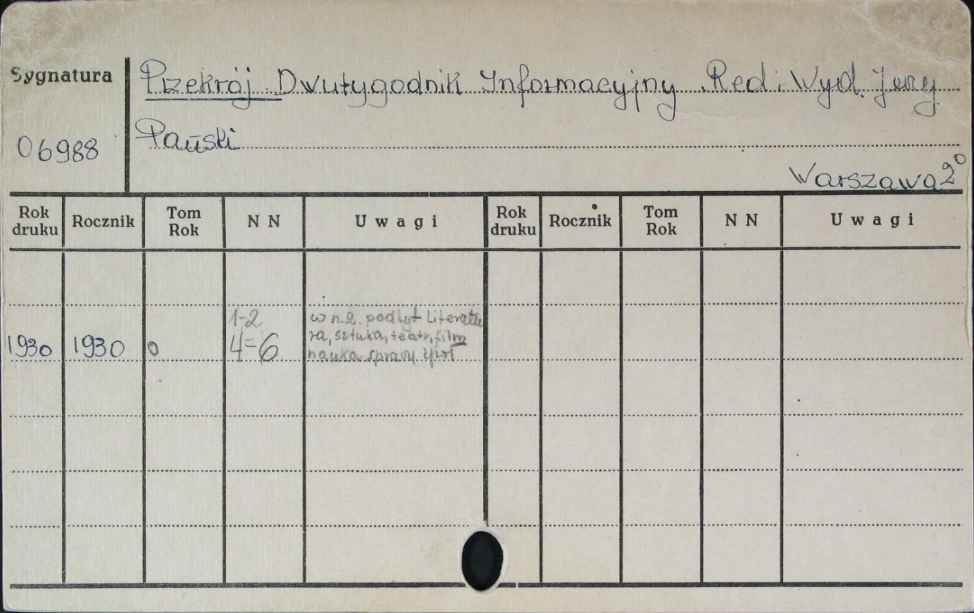 Sygnatura
Przekrój Dwutygodnik Informacyjny Red i Wyd. Jerzy
06988
Pański
Warszawa 2⁰
Rok druku Rocznik Tom Rok N N Uwagi Rok druku Rocznik Tom Rok N N Uwagi
1-2
w n.2. podtyt Literatu
ra, sztuka, teatr, film
1930 1930 0 4=6
nauka